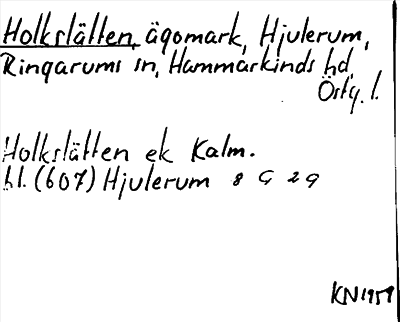 Holkslätten, ägomark, Hjulerum,
Ringarums sn, Hammarkinds hd,
Östg. l.
Holkslätten ek Kalm.
bl. (607) Hjulerum 8 G 2g
KN 1959